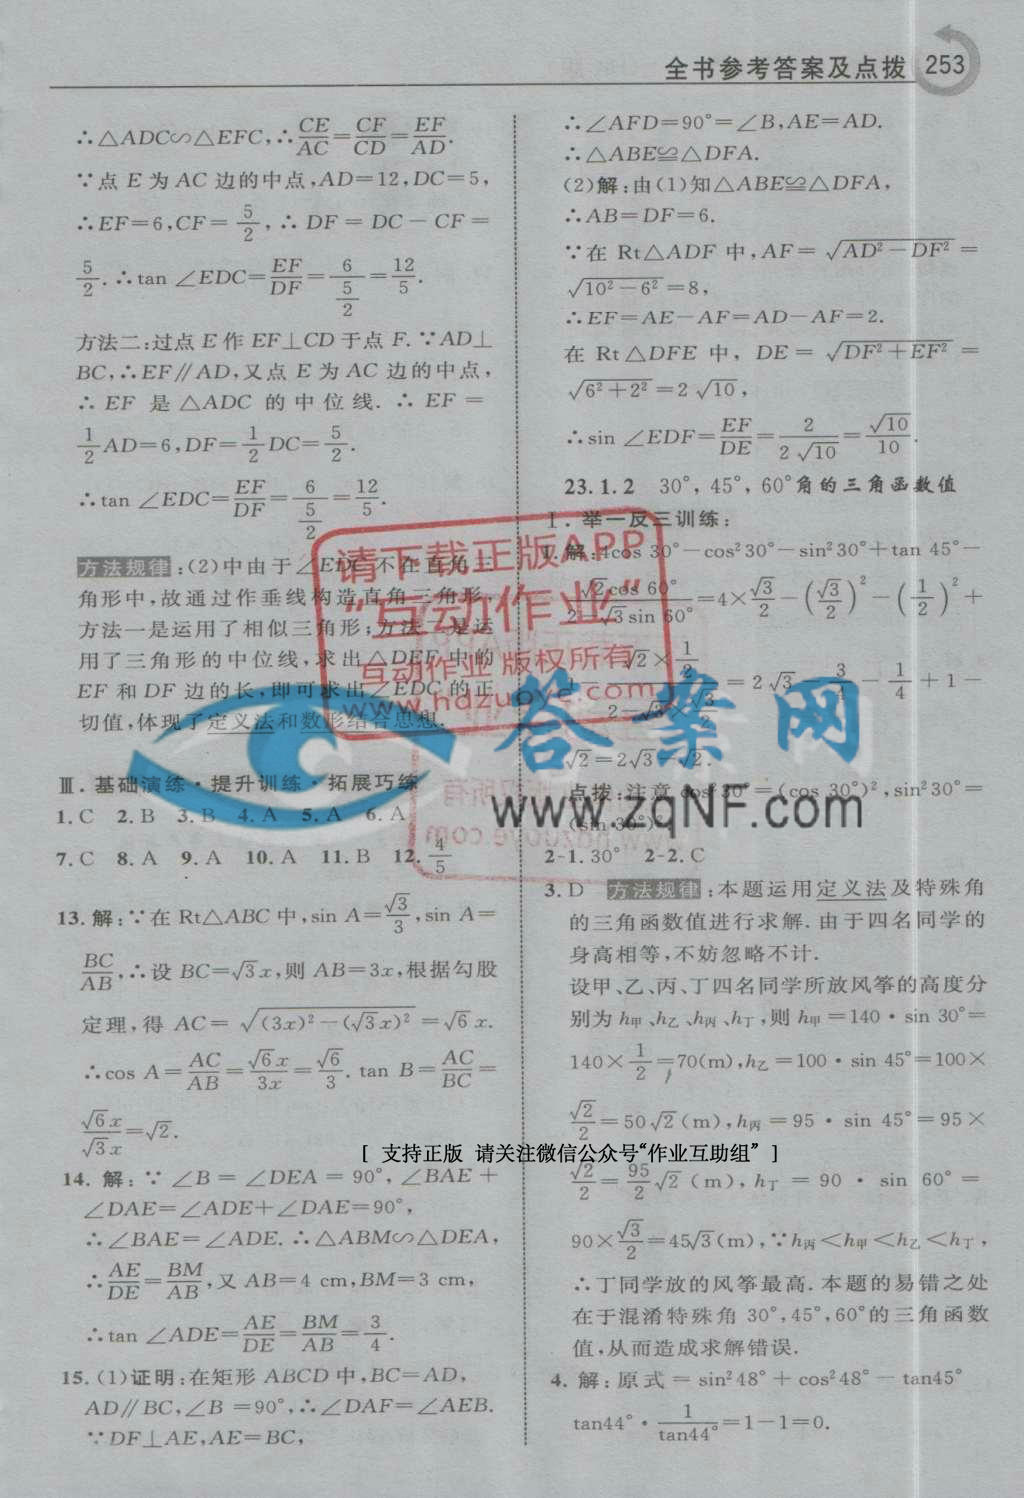 全书参考答案及点拨 253
∴△ADC∽△EFC,∴CE/AC=CF/CD=EF/AD.
∵点 E 为 AC 边的中点,AD=12,DC=5,
∴EF=6,CF=5/2,∴ DF = DC - CF =
5/2.∴tan ∠EDC=EF/DF=6/(5/2)=12/5.
方法二:过点 E 作 EF⊥CD 于点 F.∵AD⊥
BC,∴EF∥AD,又点 E 为 AC 边的中点,
∴ EF 是 △ADC 的中位线. ∴ EF =
1/2AD=6,DF=1/2DC=5/2.
∴tan ∠EDC=EF/DF=6/(5/2)=12/5.
方法规律:(2)中由于∠EDC 不在直角三
角形中,故通过作垂线构造直角三角形,
方法一是运用了相似三角形;方法二是运
用了三角形的中位线,求出△DEF 中的
EF 和 DF 边的长,即可求出∠EDC 的正
切值,体现了定义法和数形结合思想.
Ⅲ. 基础演练·提升训练·拓展巧练
1. C 2. B 3. B 4. A 5. A 6. A
7. C 8. A 9. A 10. A 11. B 12. 4/5
13. 解:∵在 Rt△ABC 中,sin A=√3/3,sin A=
BC/AB,∴设 BC=√3x,则 AB=3x,根据勾股
定理,得 AC=√((3x)²-(√3x)²)=√6x.
∴cos A=AC/AB=√6x/3x=√6/3. tan B=AC/BC=
√6x/√3x=√2.
14. 解:∵ ∠B = ∠DEA = 90°,∠BAE +
∠DAE=∠ADE+∠DAE=90°,
∴∠BAE=∠ADE.∴△ABM∽△DEA,
∴AE/DE=BM/AB,又 AB=4 cm,BM=3 cm,
∴tan ∠ADE=AE/DE=BM/AB=3/4.
15. (1)证明:在矩形 ABCD 中,BC=AD,
AD∥BC,∠B =90°,∴∠DAF=∠AEB.
∵DF⊥AE,AE=BC,
∴∠AFD=90°=∠B,AE=AD.
∴△ABE≌△DFA.
(2)解:由(1)知△ABE≌△DFA,
∴AB=DF=6.
∵在 Rt△ADF 中,AF=√(AD²-DF²)=
√(10²-6²)=8,
∴EF=AE-AF=AD-AF=2.
在 Rt△DFE 中, DE=√(DF²+EF²)=
√(6²+2²)=2√10,
∴sin ∠EDF=EF/DE=2/(2√10)=√10/10.
23.1.2 30°,45°,60°角的三角函数值
Ⅰ. 举一反三训练:
1. 解:4cos 30°-cos²30°-sin²30°+tan 45°-
√2cos 60°/(2-√3sin 60°)=4×√3/2-(√3/2)²-(1/2)²+
(√2×1/2)/(2-√3×√3/2)=2√3-3/4-1/4+1-
√2=2√3-√2.
点拨:注意 cos²30°=(cos 30°)²,sin²30°=
(sin 30°)²
2-1. 30° 2-2. C
3. D 方法规律:本题运用定义法及特殊角
的三角函数值进行求解. 由于四名同学的
身高相等,不妨忽略不计.
设甲、乙、丙、丁四名同学所放风筝的高度分
别为 h甲、h乙、h丙、h丁,则 h甲=140·sin 30°=
140×1/2=70(m),h乙=100·sin 45°=100×
√2/2=50√2(m),h丙=95·sin 45°=95×
√2/2=95/2√2(m),h丁=90·sin 60°=
90×√3/2=45√3(m),∵h丙<h甲<h乙<h丁,
∴丁同学放的风筝最高. 本题的易错之处
在于混淆特殊角 30°,45°,60°的三角函数
值,从而造成求解错误.
4. 解:原式=sin²48°+cos²48°-tan44°
tan44°·1/tan44°=1-1=0.
请下载正版APP
“互动作业”
互动作业 版权所有
www.hdzuoye.com
答案网
www.zqNF.com
[ 支持正版 请关注微信公众号“作业互助组” ]